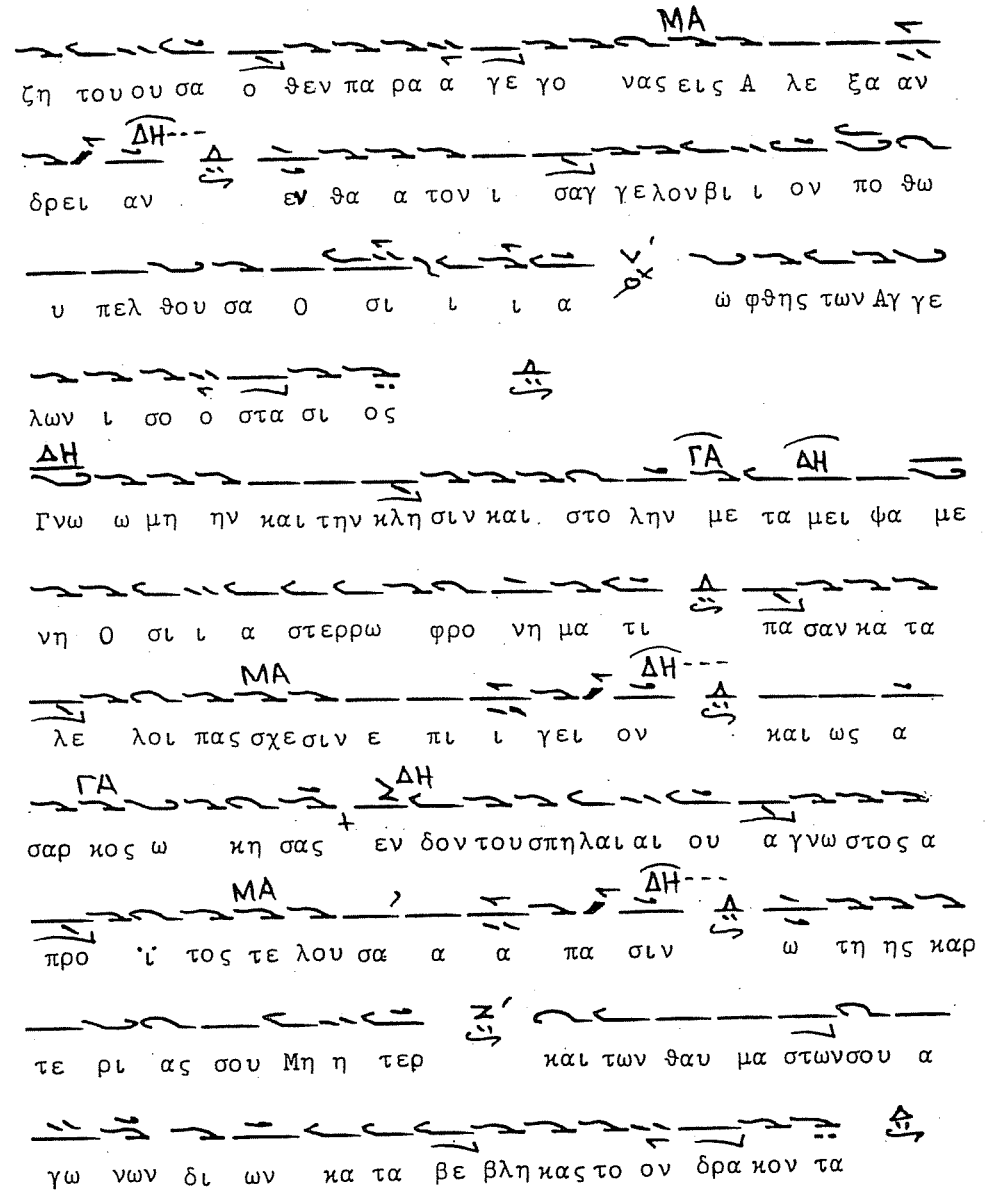 ΜΑ
ζη του ου σα ο θεν πα ρα α γε γο νας εις Α λε ξα αν
ΔΗ
δρει αν εν θα α τον ι σαγ γε λον βι ι ον πο θω
υ πελ θου σα Ο σι ι ι α ὠ φθης των Αγ γε
λων ι σο ο στα σι ος
ΔΗ ΓΑ ΔΗ
Γνω ω μη ην και την κλη σιν και στο λην με τα μει ψα με
νη Ο σι ι α στερρω φρο νη μα τι πα σαν κα τα
ΜΑ ΔΗ
λε λοι πας σχε σιν ε πι ι γει ον και ως α
ΓΑ ΔΗ
σαρ κος ω κη σας εν δον του σπη λαι αι ου α γνω στος α
ΜΑ ΔΗ
προ ϊ τος τε λου σα α α πα σιν ω τη ης καρ
τε ρι ας σου Μη η τερ και των θαυ μα στων σου α
γω νων δι ων κα τα βε βλη κας το ον δρα κον τα